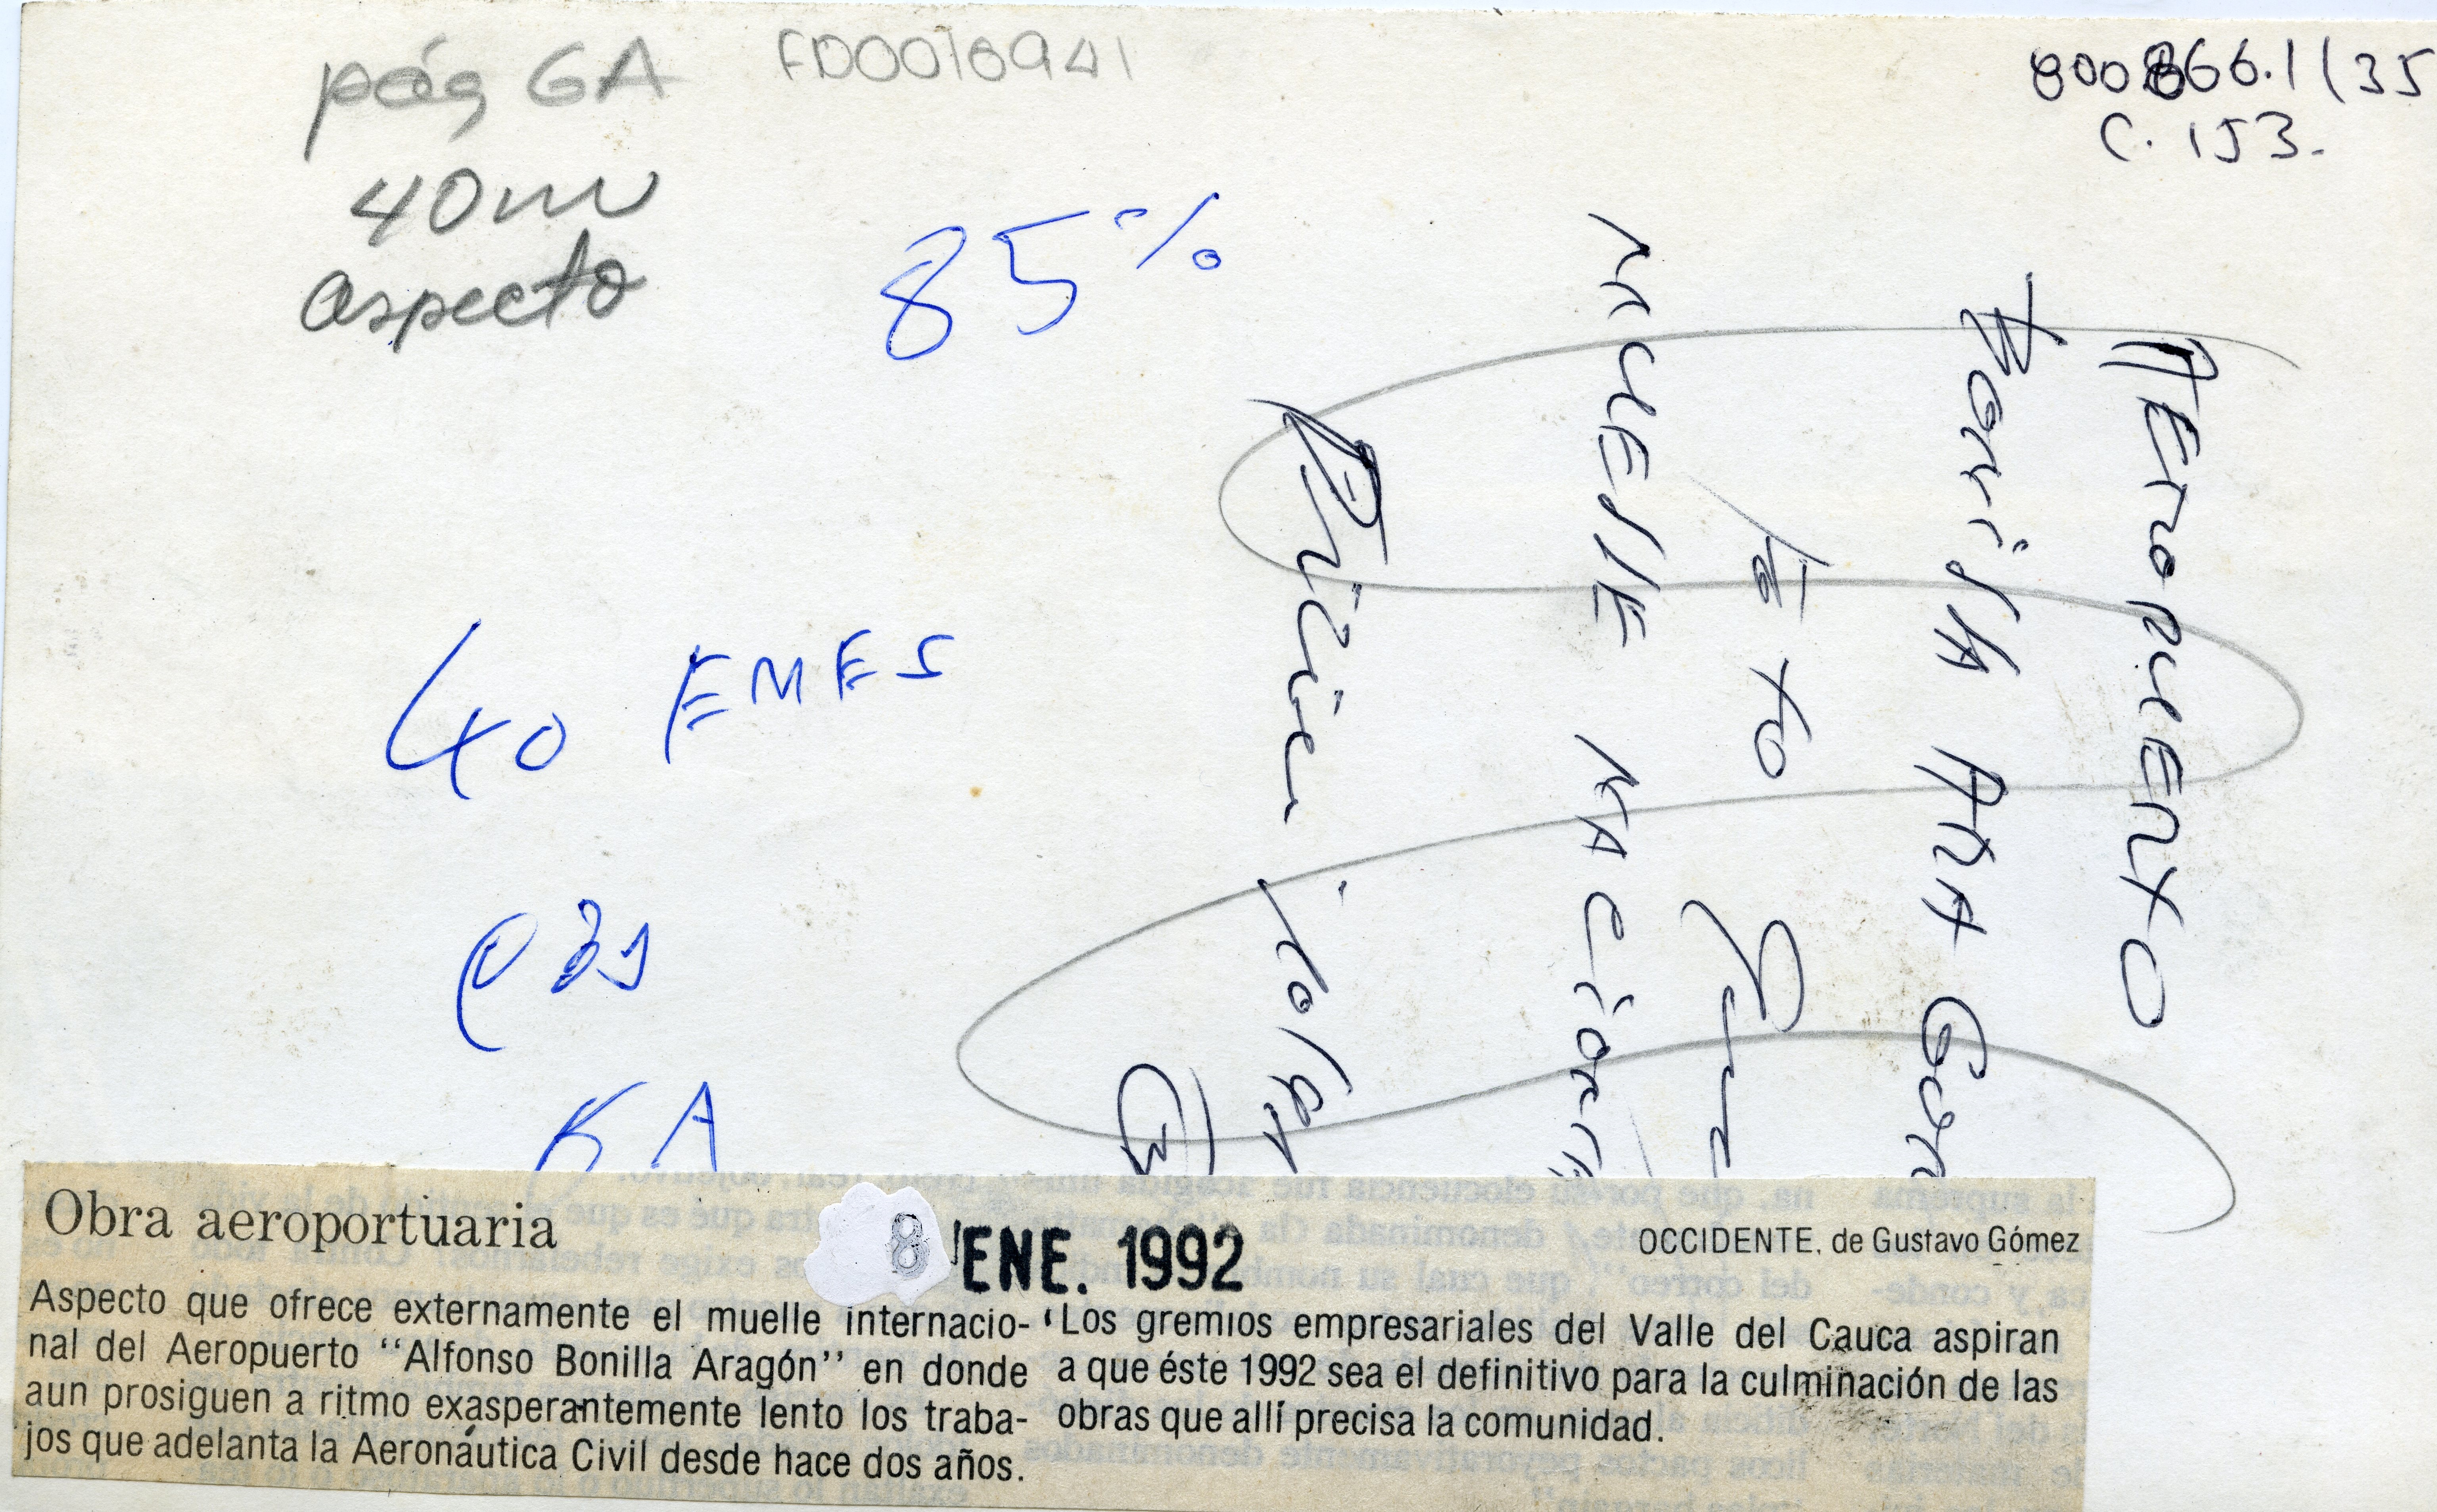 pág 6A
FD0016941
800.866.1 (35
C. 153.
40 m
aspecto
85%
40 EMES
KA
AEROPUERTO
BONILLA ARA
FOTO
MUELLE NACIONA
8 ENE. 1992
Obra aeroportuaria
OCCIDENTE, de Gustavo Gómez
Aspecto que ofrece externamente el muelle internacio-
nal del Aeropuerto “Alfonso Bonilla Aragón” en donde
aun prosiguen a ritmo exasperantemente lento los traba-
jos que adelanta la Aeronáutica Civil desde hace dos años.
Los gremios empresariales del Valle del Cauca aspiran
a que éste 1992 sea el definitivo para la culminación de las
obras que allí precisa la comunidad.